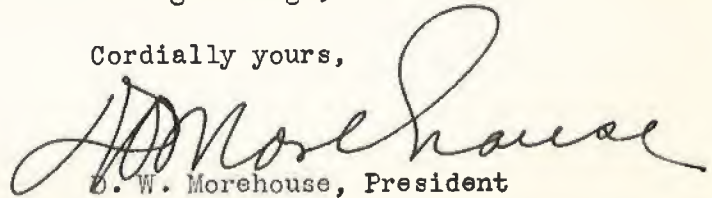 Cordially yours,
D W Morehouse
D. W. Morehouse, President